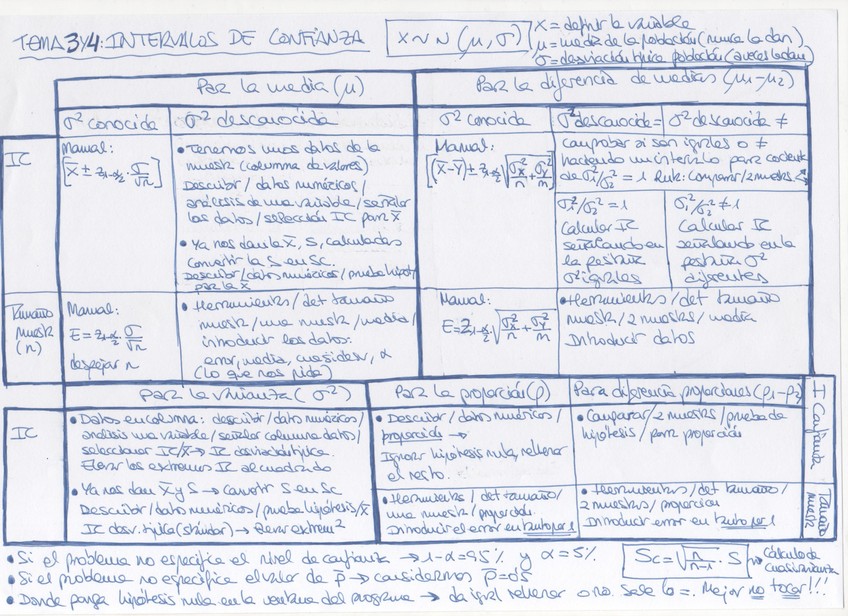 TEMA 3 y 4: INTERVALOS DE CONFIANZA
X ~ N (μ, σ)
X = definir la variable
μ = media de la población (nunca la dan)
σ = desviación típica población (a veces la dan)
Para la media (μ)
Para la diferencia de medias (μ1-μ2)
σ² conocida
σ² desconocida
σ² conocida
σ² desconocida =
σ² desconocida ≠
IC
Manual:
[x̄ ± z1-α/2 · σ/√n]
• Tenemos unos datos de la
muestr (columna de valores)
Describir / datos numéricos /
análisis de una variable / señalar
los datos / selección IC para x̄
• Ya nos dan la x̄, S, calculadas
Convertir la S en Sc.
Describir / datos numéricos / prueba hipót
para la x̄
Manual:
[(x̄-ȳ) ± z1-α/2 √σx²/n + σy²/m]
Comprobar si son iguales o ≠
haciendo un intervalo para cociente
de σ1²/σ2² = 1 Ruta: Comparar / 2 muestrs
σ1²/σ2² = 1
Calcular IC
señalando en
la pestaña
σ² iguales
σ1²/σ2² ≠ 1
Calcular IC
señalando en la
pestaña σ²
diferentes
Tamaño
muestr
(n)
Manual:
E = z1-α/2 σ/√n
despejar n
• Herramientas / det tamaño
muestr / una muestr / media /
introducir los datos:
error, media, cuasidesv, α
(lo que nos pida)
Manual:
E = z1-α/2 √σx²/n + σy²/m
• Herramientas / det tamaño
muestr / 2 muestrs / media
Introducir datos
Para la varianza (σ²)
Para la proporción (p)
Para diferencia proporciones (p1-p2)
I Confianza
IC
• Datos en columna: describir / datos numéricos /
análisis una variable / señalar columna datos /
seleccionar IC/x̄ → IC desviación típica.
Elevar los extremos IC al cuadrado
• Ya nos dan x̄ y S → Convertir S en Sc
Describir / datos numéricos / prueba hipótesis / x̄
IC desv. típica (stándar) → Elevar extrem²
• Describir / datos numéricos /
proporción →
Ignorar hipótesis nula, rellenar
el resto.
• Comparar / 2 muestrs / prueba de
hipótesis / para proporción
Tamaño
muestr
• Herramientas / det tamaño /
una muestr / proporción.
Introducir el error en tanto por 1
• Herramientas / det tamaño /
2 muestrs / proporcion
Introducir error en tanto por 1
• Si el problema no especifica el nivel de confianza → 1-α = 95% y α = 5%
Sc = √n/n-1 · S → Cálculo de
cuasivarianza
• Si el problema no especifica el valor de p̄ → consideramos p̄ = 0'5
• Donde ponga hipótesis nula en la ventana del programa → da igual rellenar o no. Sale lo =. Mejor no tocar!!!